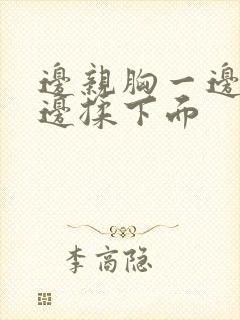 邊親胸一邊
邊揉下而
李商隐